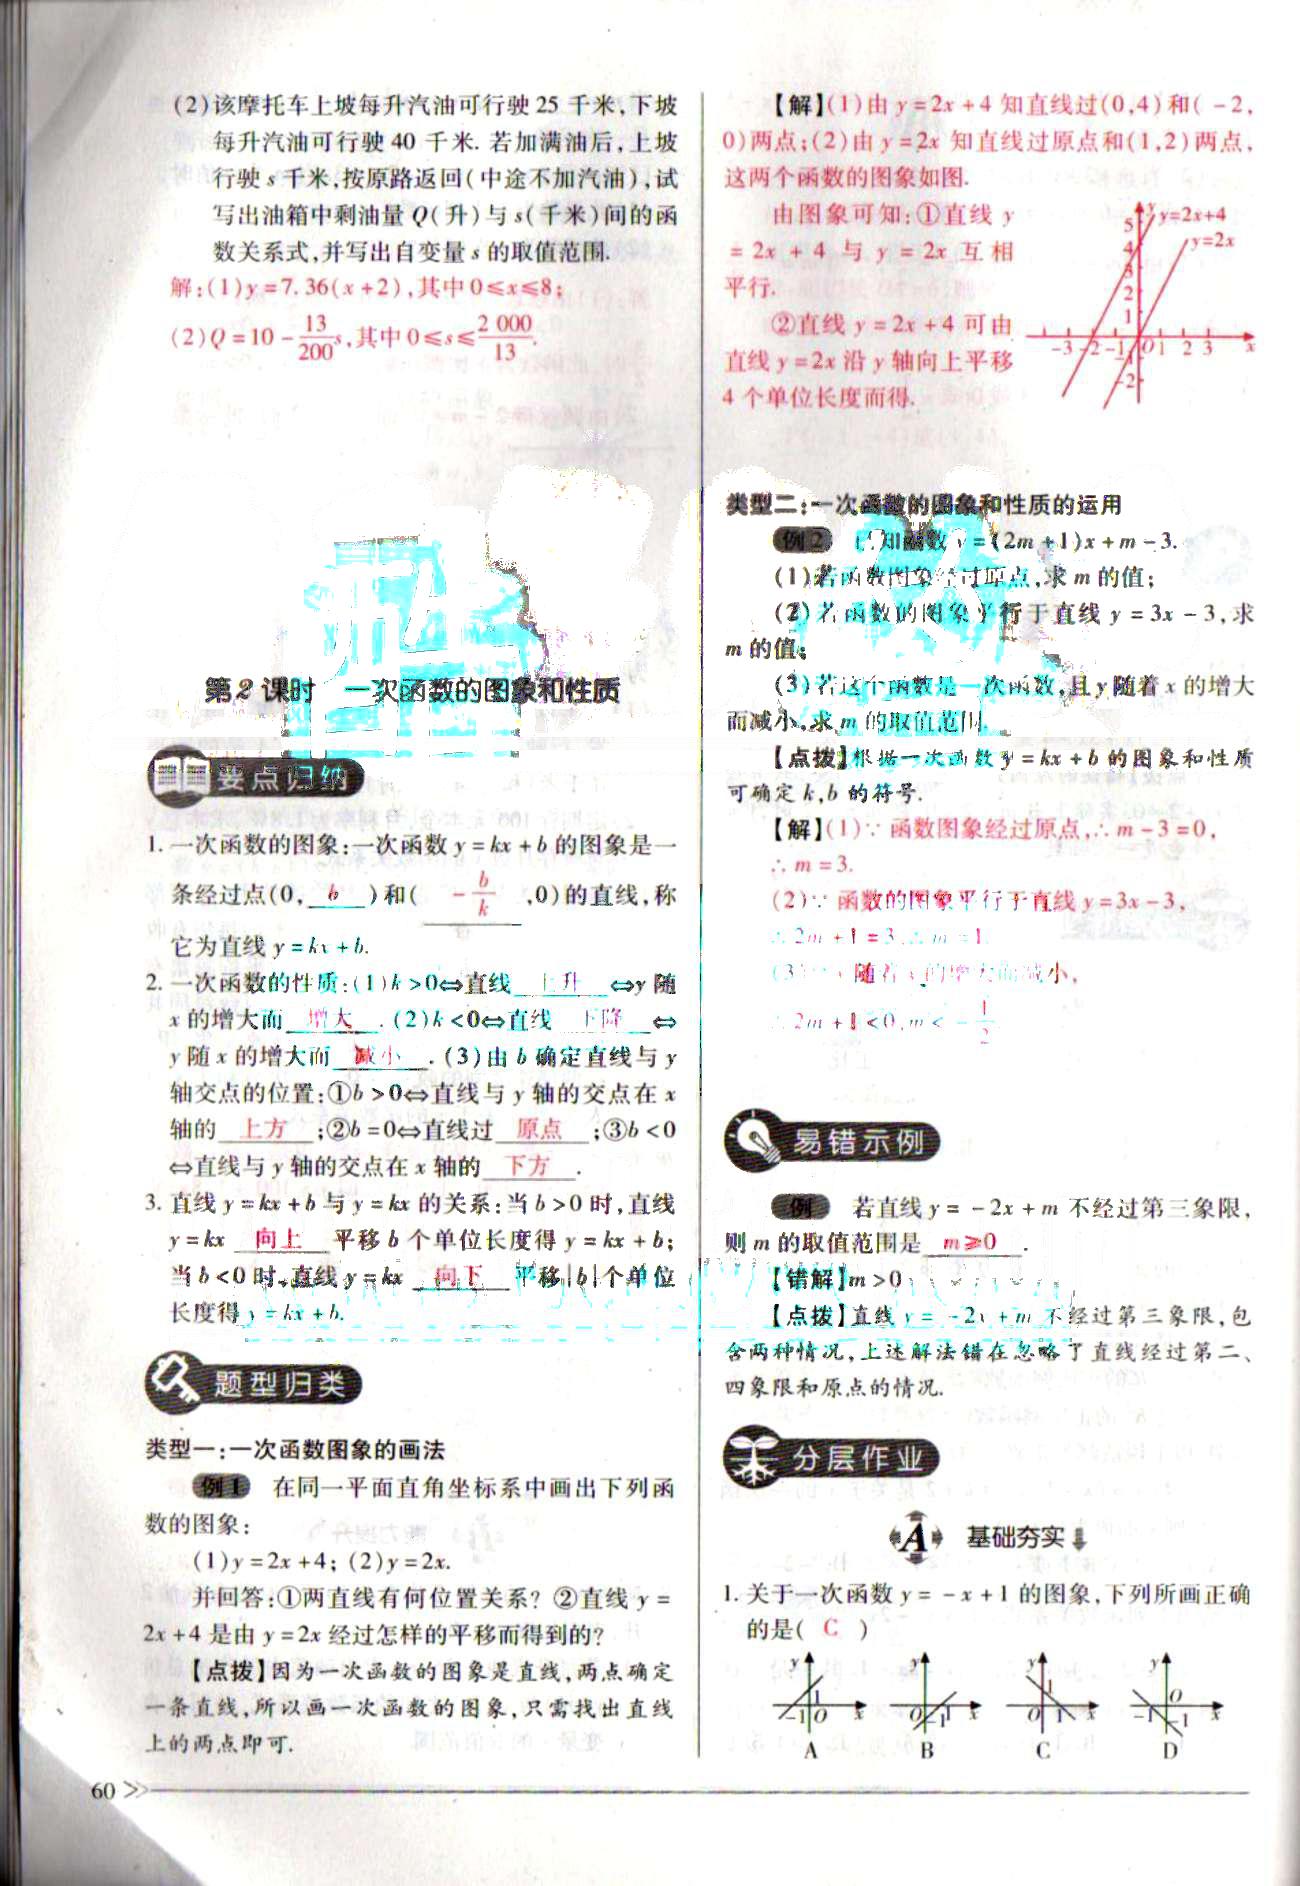 (2)该摩托车上坡每升汽油可行驶25千米,下坡
每升汽油可行驶40千米.若加满油后,上坡
行驶s千米,按原路返回(中途不加汽油),试
写出油箱中剩油量Q(升)与s(千米)间的函
数关系式,并写出自变量s的取值范围.
解:(1)y=7.36(x+2),其中0≤x≤8;
(2)Q=10-13/200s,其中0≤s≤2 000/13.
第2课时 一次函数的图象和性质
要点归纳
1. 一次函数的图象:一次函数y=kx+b的图象是一
条经过点(0, b )和( -b/k ,0)的直线,称
它为直线y=kx+b.
2. 一次函数的性质:(1)k>0⇔直线 上升 ⇔y随
x的增大而 增大 .(2)k<0⇔直线 下降 ⇔
y随x的增大而 减小 .(3)由b确定直线与y
轴交点的位置:①b>0⇔直线与y轴的交点在x
轴的 上方 ;②b=0⇔直线过 原点 ;③b<0
⇔直线与y轴的交点在x轴的 下方 .
3. 直线y=kx+b与y=kx的关系:当b>0时,直线
y=kx 向上 平移b个单位长度得y=kx+b;
当b<0时,直线y=kx 向下 平移|b|个单位
长度得y=kx+b.
题型归类
类型一:一次函数图象的画法
例1 在同一平面直角坐标系中画出下列函
数的图象:
(1)y=2x+4; (2)y=2x.
并回答:①两直线有何位置关系?②直线y=
2x+4是由y=2x经过怎样的平移而得到的?
【点拨】因为一次函数的图象是直线,两点确定
一条直线,所以画一次函数的图象,只需找出直线
上的两点即可.
60
【解】(1)由y=2x+4知直线过(0,4)和(-2,
0)两点;(2)由y=2x知直线过原点和(1,2)两点,
这两个函数的图象如图.
由图象可知:①直线y
=2x+4与y=2x互相
平行.
②直线y=2x+4可由
直线y=2x沿y轴向上平移
4个单位长度而得.
y
y=2x+4
y=2x
5
4
3
2
1
-3 -2 -1 O 1 2 3 x
-1
-2
类型二:一次函数的图象和性质的运用
例2 已知函数y=(2m+1)x+m-3.
(1)若函数图象经过原点,求m的值;
(2)若函数的图象平行于直线y=3x-3,求
m的值;
(3)若这个函数是一次函数,且y随着x的增大
而减小,求m的取值范围.
【点拨】根据一次函数y=kx+b的图象和性质
可确定k,b的符号.
【解】(1)∵函数图象经过原点,∴m-3=0,
∴m=3.
(2)∵函数的图象平行于直线y=3x-3,
∴2m+1=3,∴m=1.
(3)∵y随着x的增大而减小,
∴2m+1<0,m<-1/2.
易错示例
例 若直线y=-2x+m不经过第三象限,
则m的取值范围是 m≥0 .
【错解】m>0
【点拨】直线y=-2x+m不经过第三象限,包
含两种情况,上述解法错在忽略了直线经过第二、
四象限和原点的情况.
分层作业
A 基础夯实
1. 关于一次函数y=-x+1的图象,下列所画正确
的是( C )
y y y y
1 1 O
-1 O x O 1 x O 1 x -1 x
-1 -1
A B C D